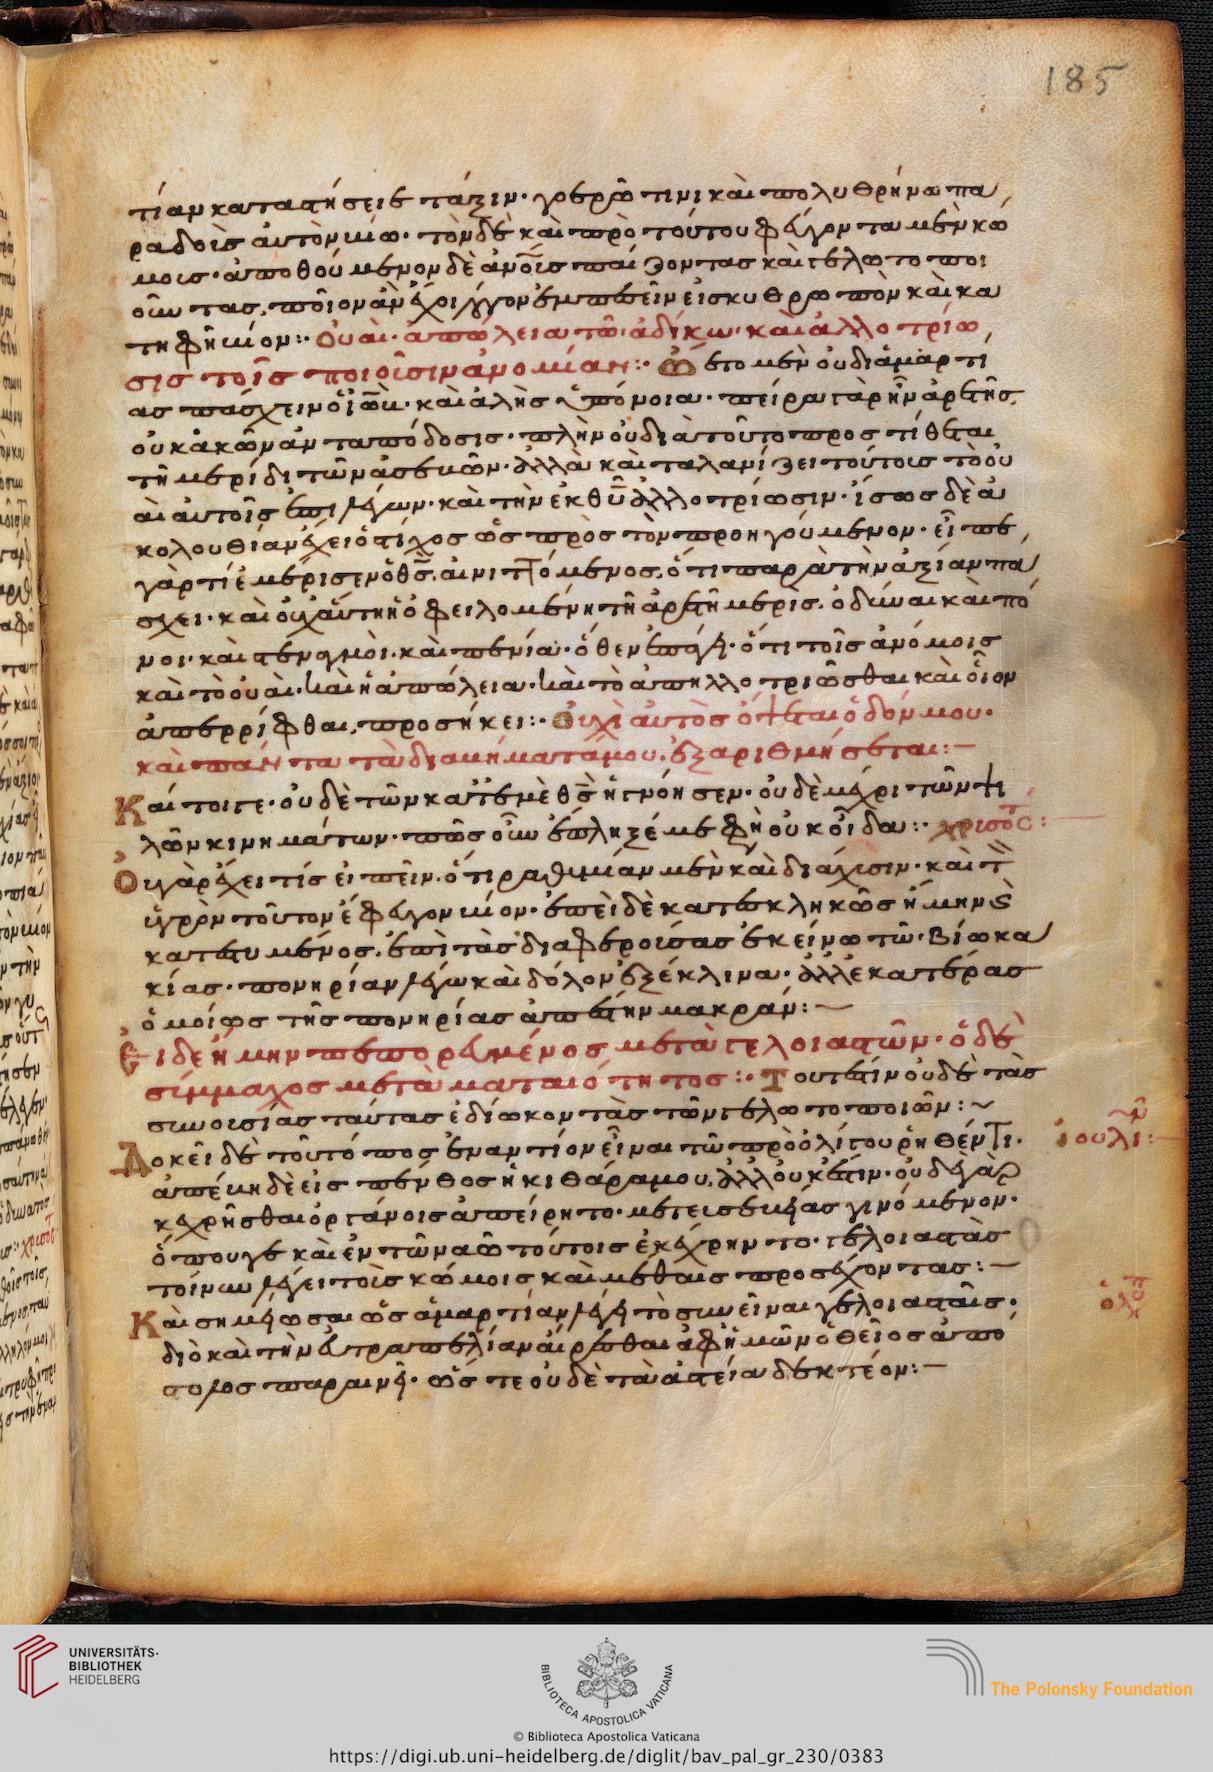 185
τίαν καταστήσειε τάξιν· γοερῶ τινι καὶ πολυθρήνω πα
ραδοὺς αὐτὸν βίω· τὸν δὲ καὶ πρὸ τούτου φεύγοντα μὲν κώ
μοις· ἀποθούμενον δὲ παίζοντας καὶ γέλωτο ποι
οῦντας. εἰπεῖν εἰς σκυθρωπὸν καὶ κα
τηφῆ βίον:· Οὐαὶ· ἀπώλεια τῶ ἀδίκω· καὶ ἀλλοτρίω
σις τοῖς ποιοῦσιν ἀνομίαν:· Ὤετο μὲν οὐ δι' ἁμαρτί
ας πάσχειν ὁ ἰώβ· καὶ ἀληθὴς ἡ ὑπόνοια· πεῖρα γὰρ ἦν ἀρετῆς.
οὐ κακῶν ἀνταπόδοσις· πλὴν οὐ διὰ τοῦτο προστίθεται
τῆ μερίδι τῶν ἀσεβῶν· ἀλλὰ καὶ ταλανίζει τούτοις τὸ οὐ
αὶ αὐτοῖς ἐπιλέγων· καὶ τὴν ἐκ θῦ ἀλλοτρίωσιν· ἴσως δὲ ἀ
κολουθίαν ἔχει ὁ στίχος ὡς πρὸς τὸν προηγούμενον· εἶπε
γὰρ τί ἐμέρισεν ὁ θς. αἰνιττόμενος. ὅτι παρὰ τὴν ἀξίαν πά
σχει· καὶ οὐχ αὕτη ἡ ὀφειλομένη τῆ ἀρετῆ μερὶς. ὀδύναι καὶ πό
νοι· καὶ στεναγμοὶ· καὶ πενία· ὅθεν ἐπάγει· ὅτι τοῖς ἀνόμοις
καὶ τὸ οὐαὶ· καὶ ἡ ἀπώλεια· καὶ τὸ ἀπηλλοτριῶσθαι καὶ οἷον
ἀπερρίφθαι, προσήκει:· Οὐχὶ αὐτὸς ὄψεται ὁδόν μου·
καὶ πάντα τὰ διαβήματά μου. ἐξαριθμήσεται:–
Καίτοιγε· οὐδὲ τῶν κατ' ἐμὲ θς ἠγνόησεν· οὐδὲ μέχρι τῶν ψι
λῶν κινημάτων· πῶς οὖν ἐπληξέ με φὴ οὐκ οἶδα:· χρυσοστ:
Οὐ γὰρ ἔχει τίς εἰπεῖν. ὅτι ῥαθυμίαν μὲν καὶ διάχυσιν· καὶ τὸν
ὑγρὸν τοῦτον ἔφυγον βίον· ἐπεὶ δὲ κατεσκληκὼς ἤμην καὶ
κατεστυμμένος. ἐπὶ τὰς διαφερούσας ἐκείνω τῶ βίω κα
κίας· πονηρίαν λέγω καὶ δόλον ἐξέκλινα· ἀλλ' ἑκατέρας
ὁμοίως τῆς πονηρίας ἀπέστην μακράν:–
Εἰ δὲ ἤμην πεπορευμένος μετὰ γελοιαστῶν· ὁ δὲ
σύμμαχος μετὰ ματαιότητος:· Τουτέστιν οὐδὲ τὰς
συνουσίας ταύτας ἐδίωκον τὰς τῶν γελωτοποιῶν:~
Δοκεῖ δὲ τοῦτό πως ἐναντίον εἶναι τῶ πρὸ ὀλίγου ῥηθέντι·
ἀπέβη δὲ εἰς πένθος ἡ κιθάρα μου. ἀλλ' οὐκ ἔστιν· οὐδὲ γὰρ
κεχρῆσθαι ὀργάνοις ἀπείρητο· μετ' εὐσεβείας γινόμενον·
ὅπου γε καὶ ἐν τῶ ναῶ τούτοις ἐκέχρηντο· γελοιαστὰς
τοίνυν λέγει τοὺς κώμοις καὶ μέθαις προσέχοντας:–
Καὶ σημείωσαι ὡς ἁμαρτίαν λέγει τὸ συνεῖναι γελοιασταῖς·
διὸ καὶ τὴν εὐτραπελίαν αἴρεσθαι ἀφ' ἡμῶν ὁ θεῖος ἀπό
στολος παραινεῖ· ὥστε οὐδὲ τὰ ἀστεῖα δεκτέον:–
ἰουλι:
UNIVERSITÄTS-
BIBLIOTHEK
HEIDELBERG
BIBLIOTECA APOSTOLICA VATICANA
The Polonsky Foundation
© Biblioteca Apostolica Vaticana
https://digi.ub.uni-heidelberg.de/diglit/bav_pal_gr_230/0383